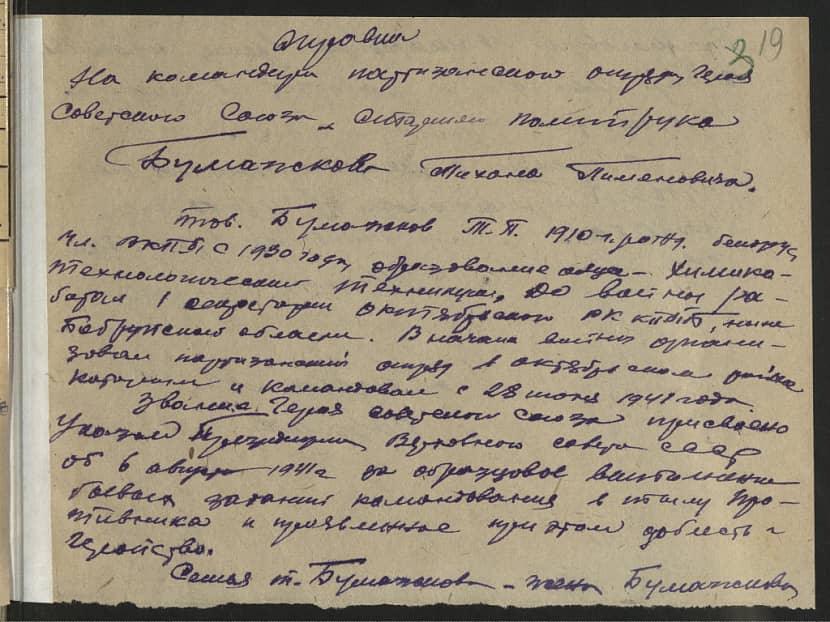 3 19
Справка
На командира партизанского отряда Героя
Советского Союза старшего политрука
Бумажкова Тихона Пименовича.
Тов. Бумажков Т. П. 1910 г. рожд. белорус,
чл. ВКП(б) с 1930 года, образование Химико-
технологический техникум, до войны ра-
ботал 1 секретарем Октябрьского РК КП(б)Б, ныне
Бобруйской области. В начале войны органи-
зовал партизанский отряд в Октябрьском районе
которым и командовал с 28 июня 1941 года.
Звание Героя Советского Союза присвоено
Указом Президиума Верховного Совета СССР
от 6 августа 1941 г за образцовое выполнение
боевых заданий командования в тылу про-
тивника и проявленное при этом доблесть и
геройство.
Семья т. Бумажкова – жена Бумажкова